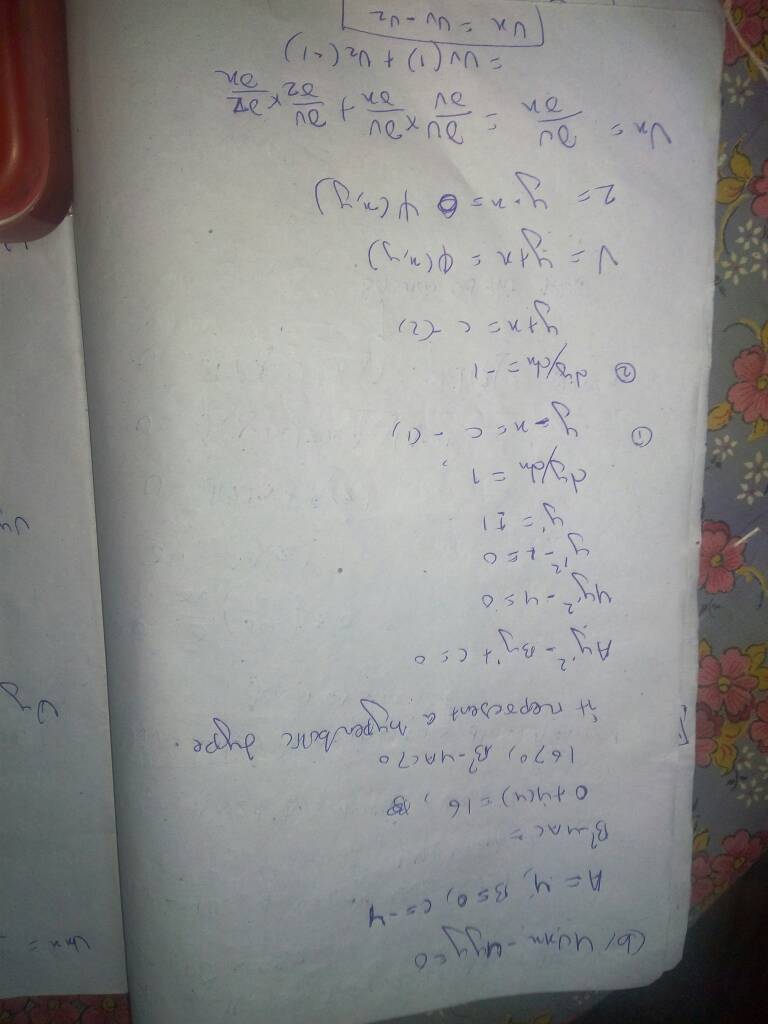 (b) 4Uxx - 4yy = 0
A = 4, B = 0, C = -4
B²-4AC =
0+4(4) = 16,
16>0, B²-4AC>0
it represent a hyperbolic type.
Ay'² - By' + C = 0
4y'² - 4 = 0
y'² - 1 = 0
y' = ±1
dy/dx = 1
① y - x = C - (1)
② dy/dx = -1
y + x = C - (2)
V = y+x = φ(x,y)
z = y-x = ψ(x,y)
Ux = ∂U/∂x = ∂U/∂V × ∂V/∂x + ∂U/∂z × ∂z/∂x
= Uv(1) + Uz(-1)
Ux = Uv - Uz
Uxx =
Uy